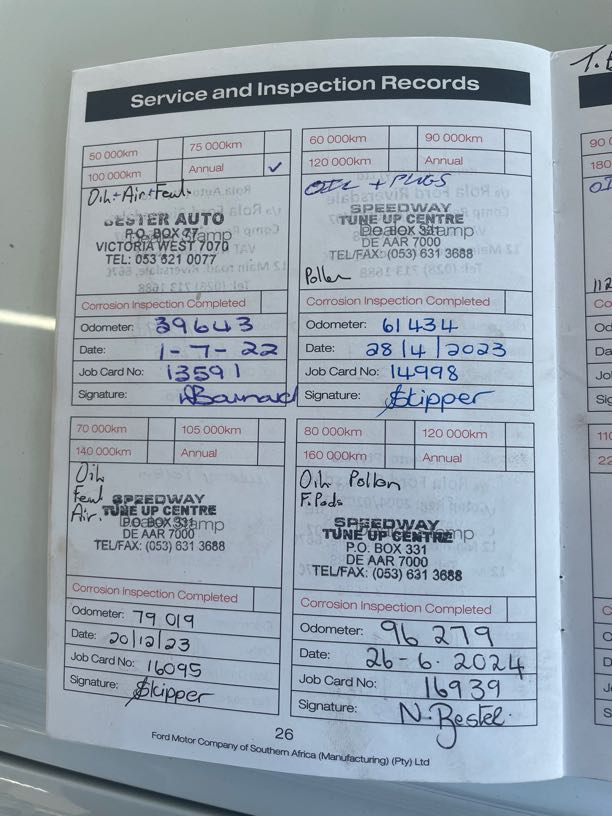 Service and Inspection Records
50 000km 75 000km
100 000km Annual ✓
Oil + Air + Feul.
BESTER AUTO
P.O. BOX 77
VICTORIA WEST 7070
TEL: 053 621 0077
Corrosion Inspection Completed
Odometer: 39643
Date: 1-7-22
Job Card No: 13591
Signature:
60 000km 90 000km
120 000km Annual
OIL + PLUGS
SPEEDWAY
TUNE UP CENTRE
P.O. BOX 331
DE AAR 7000
TEL/FAX: (053) 631 3688
Pollen
Corrosion Inspection Completed
Odometer: 61434
Date: 28/4/2023
Job Card No: 14998
Signature: Skipper
70 000km 105 000km
140 000km Annual
Oil
Feul
Air.
SPEEDWAY
TUNE UP CENTRE
P.O. BOX 331
DE AAR 7000
TEL/FAX: (053) 631 3688
Corrosion Inspection Completed
Odometer: 79 019
Date: 20/12/23
Job Card No: 16095
Signature: Skipper
80 000km 120 000km
160 000km Annual
Oil Pollen
F. Pads
SPEEDWAY
TUNE UP CENTRE
P.O. BOX 331
DE AAR 7000
TEL/FAX: (053) 631 3688
Corrosion Inspection Completed
Odometer: 96 279
Date: 26-6-2024
Job Card No: 16939
Signature: N. Bestel.
26
Ford Motor Company of Southern Africa (Manufacturing) (Pty) Ltd